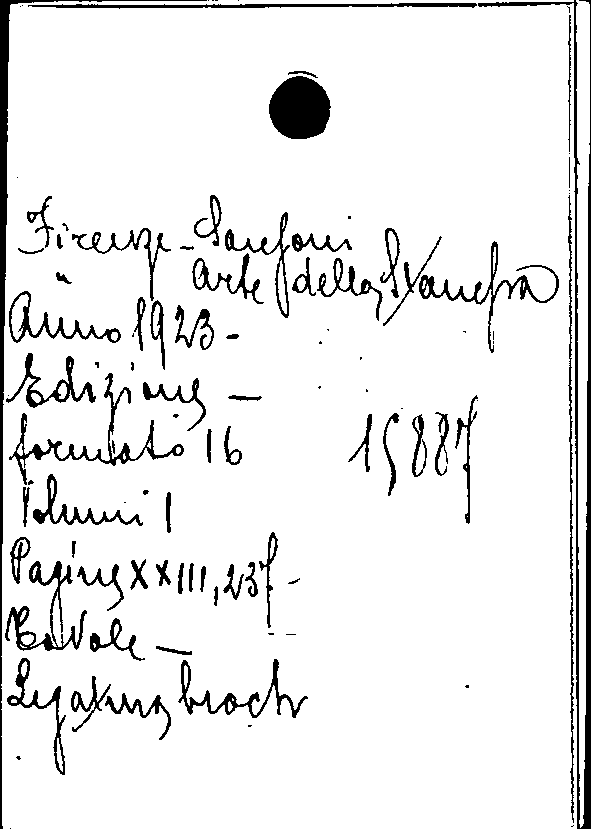 Firenze - Sansoni
" Arte della Stampa
Anno 1923 -
Edizione —
formato 16 15887
Volumi 1
Pagine XXIII, 237 -
Tavole —
Legatura broch